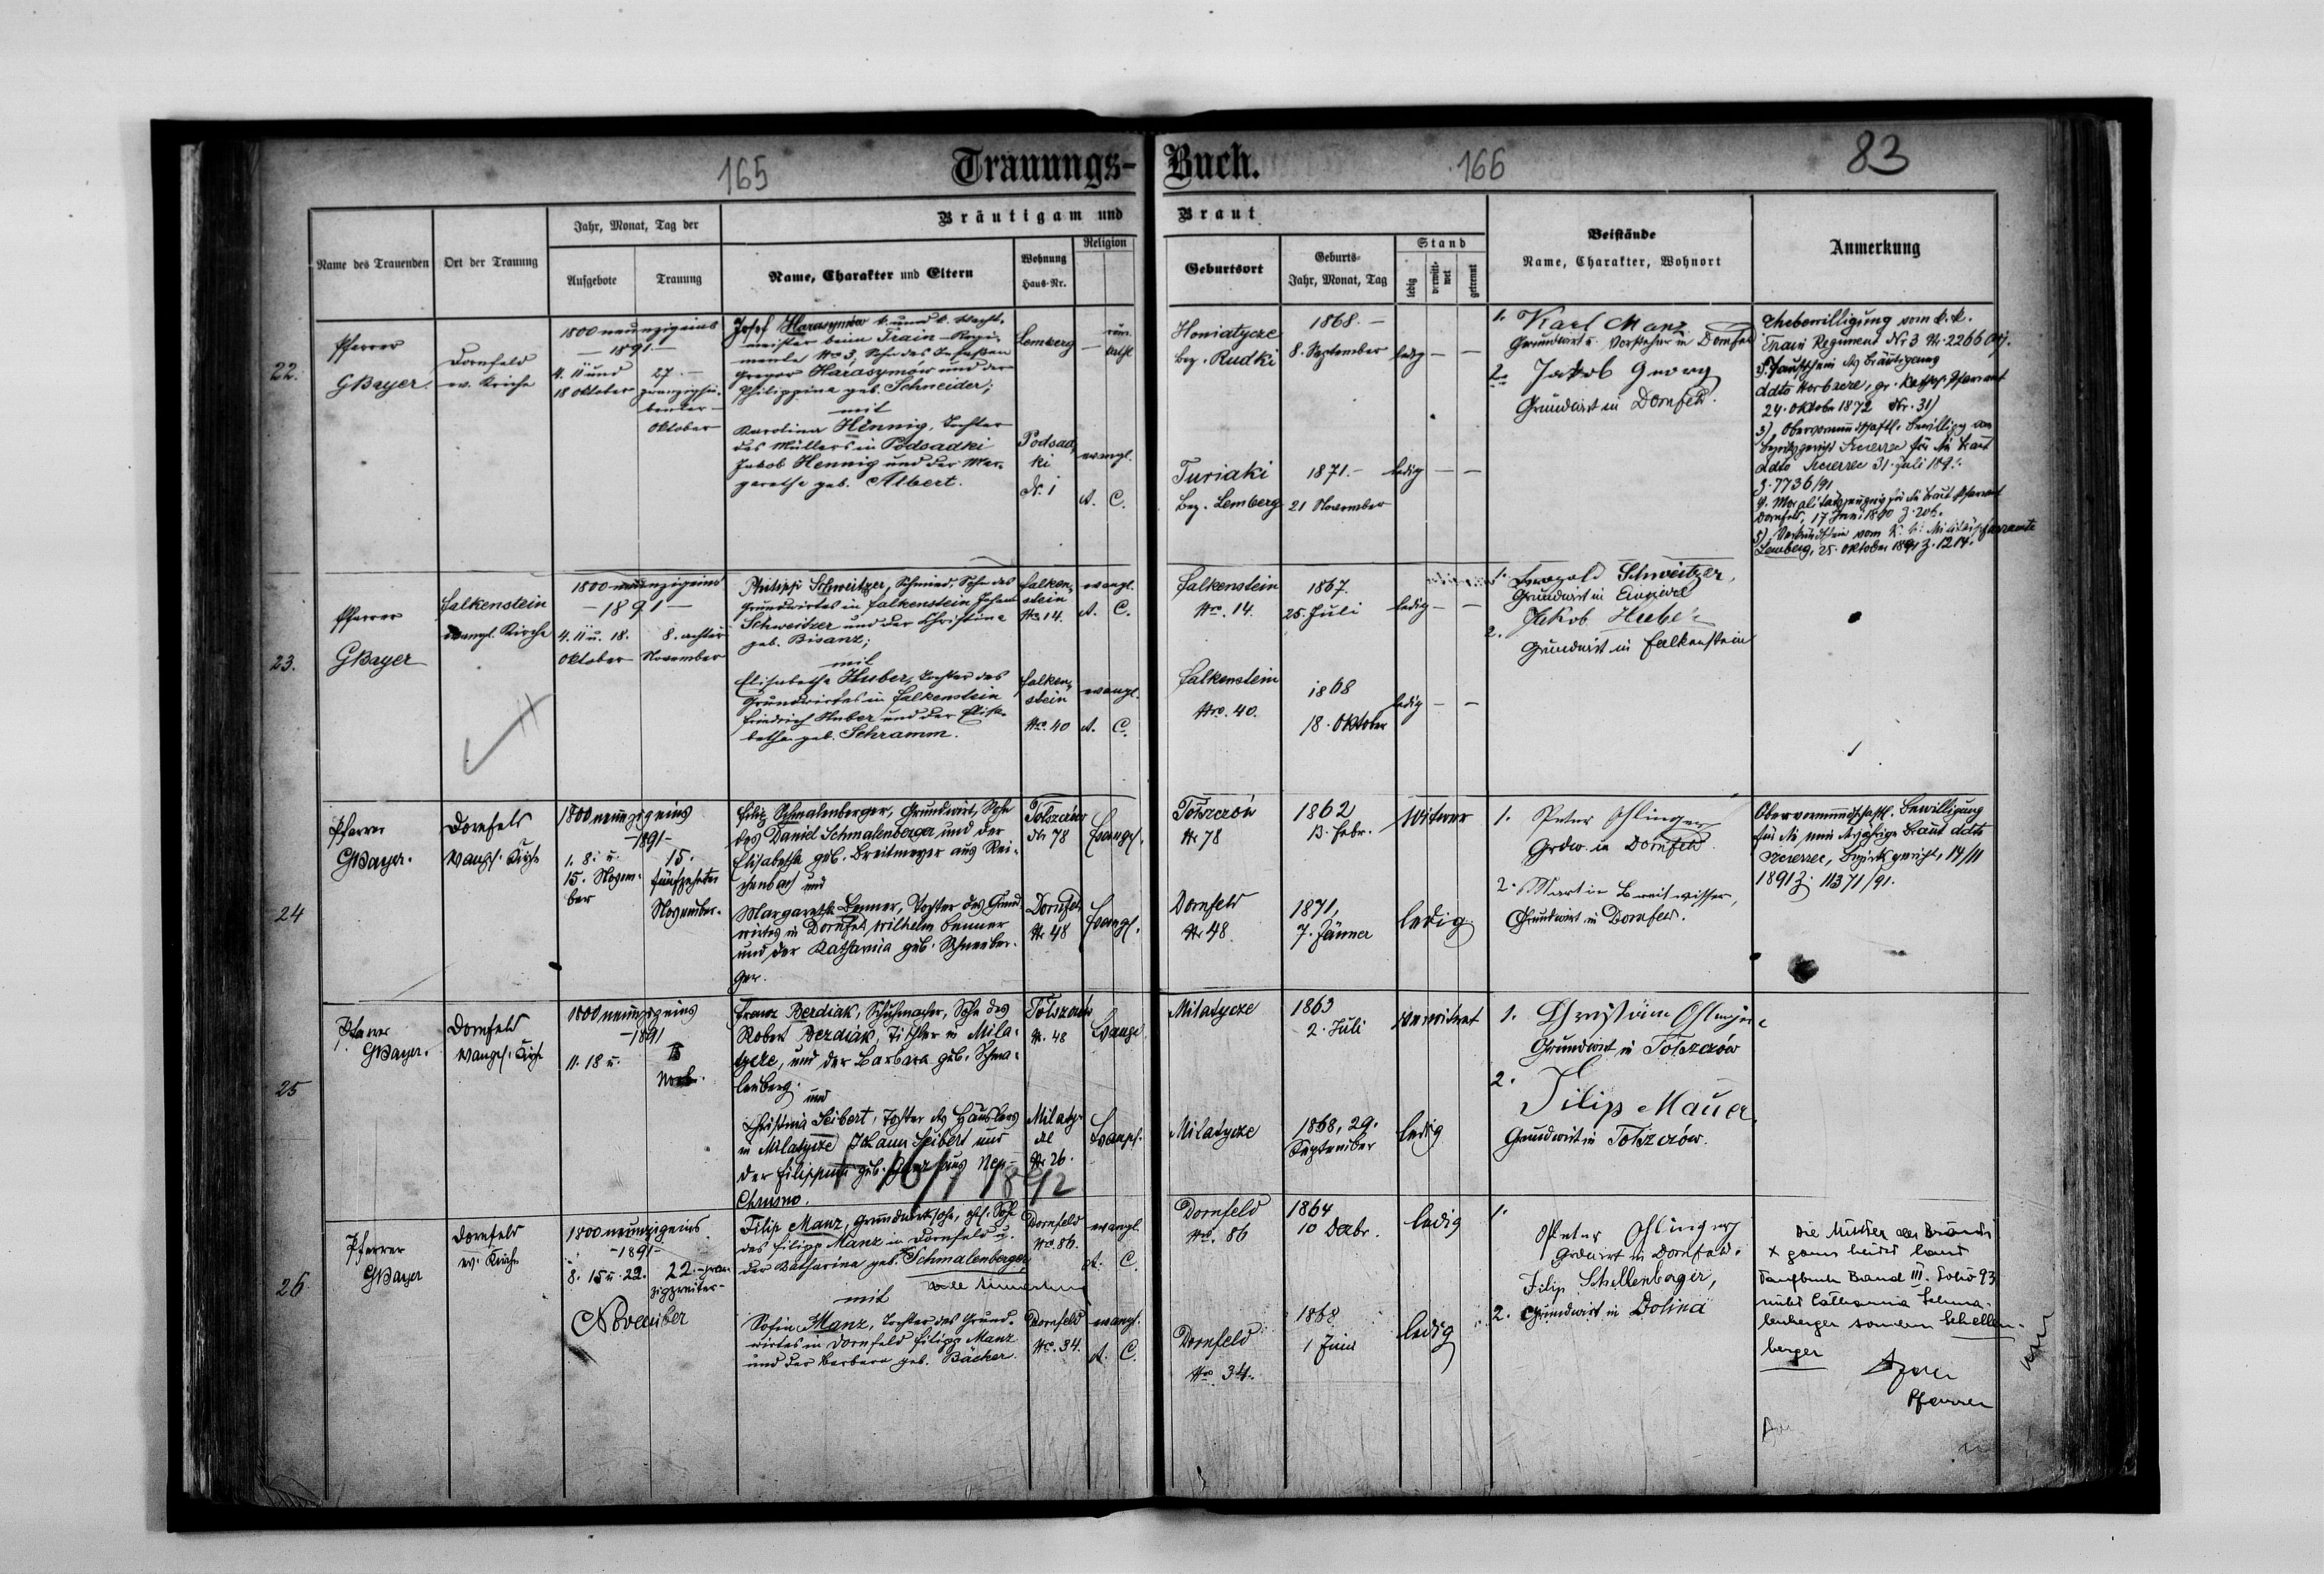 165
Trauungs-Buch.
166
83
Name des Trauenden
Ort der Trauung
Jahr, Monat, Tag der
Aufgebote
Trauung
Bräutigam und Braut
Name, Charakter und Eltern
Wohnung
Haus-Nr.
Religion
Geburtsort
Geburts-
Jahr, Monat, Tag
Stand
ledig
verwitt-
wet
getrennt
Beistände
Name, Charakter, Wohnort
Anmerkung
22.
Pfarrer
GBayer.
Dornfeld
ev. Kirche
1800 neunzigeins
- 1891 -
4. 11 und
18 Oktober
27. -
Oktober
Josef Harasymów k. und k. Wacht-
meister beim Train-Regi-
mente No 3, Sohn des Insaßen
Gregor Harasymów und der
Philippina geb. Schneider;
mit
Karolina Hennig, Tochter
des Müllers in Podsadki
Jakob Hennig und der Mar-
garetha geb. Albert.
Lemberg
röm.
kath.
Podsad-
ki
N. 1
evangl.
A. C.
Honiatycze
Bez. Rudki
1868. -
8. September
ledig - -
Turiaki
Bez. Lemberg
1871. -
21 November
ledig - -
1. Karl Manz
Grundwirt u. Vorsteher in Dornfeld
2. Jakob Georg
Grundwirt in Dornfeld.
Ehebewilligung vom k. k.
Train Regiment Nr 3 Nr. 2266 Adj.
2) Taufschein des Bräutigams
ddto Horbacze, gr. kathol. Pfarramt
24. Oktober 1872 Nr. 31)
3) Obervormundschaftl. Bewilligg vom
Bezirksgericht Szczerzec für die Braut
ddto Szczerzec 31. Juli 1891.
Z. 7736/91
4. Moralitätszeugnis für die Braut Pfarramt
Dornfeld, 17 Juni 1890 Z. 206.
5) Verkündschein vom k. k. Militärpfarramte
Lemberg, 25. Oktober 1891 Z. 1214.
23.
Pfarrer
GBayer
Falkenstein
evangl. Kirche
1800 neunzigeins
- 1891 -
4. 11 u. 18.
Oktober
8. achter
November
Philipp Schweitzer, Schmied, Sohn des
Grundwirtes in Falkenstein Johann
Schweitzer und der Christine
geb. Bisanz;
mit
Elisabetha Huber, Tochter des
Grundwirtes in Falkenstein
Friedrich Huber und der Elisa-
betha geb. Schramm.
Falken-
stein
No. 14.
evangl.
A. C.
Falken-
stein
No. 40
evangl.
A. C.
Falkenstein
No. 14.
1867.
25. Juli
ledig - -
Falkenstein
No. 40.
1868
18. Oktober
ledig - -
1. Leopold Schweitzer,
Grundwirt in Einsiedel
2. Jakob Huber
Grundwirt in Falkenstein
24
Pfarrer
GBayer.
Dornfeld
evangl. Kirche
1800 neunzigeins
- 1891 -
1. 8. u.
15. Novem-
ber
15.
fünfzehnter
November.
Filip Schmalenberger, Grundwirt, Sohn
des Daniel Schmalenberger und der
Elisabetha geb. Breitmeyer aus Rei-
chenbach und
Margaretha Benner, Tochter des Grund-
wirtes in Dornfeld Wilhelm Benner
und der Katharina geb. Schneeber-
ger.
Tołszczów
Nr 78
Evangl.
Dornfeld
Nr 48
Evangl.
Tołszczów
Nr 78
1862
13. Febr.
Witwer
Dornfeld
Nr 48
1871,
7. Jänner
ledig
1. Peter Ohlinger
Grdw. in Dornfeld.
2. Martin Breitwisser,
Grundwirt in Dornfeld.
Obervormundschaftl. Bewilligung
für die minderjährige Braut ddto
Szczerzec, Bezirksgericht, 14/11
1891 Z. 11371/91.
25
Pfarrer
GBayer.
Dornfeld
evangl. Kirche
1800 neunzigeins
- 1891
11. 18 u.
Franz Berdiak, Schuhmacher, Sohn des
Robert Berdiak, Tischler in Mila-
tycze, und der Barbara geb. Schma-
lenberg.
und
Christina Seibert, Tochter des Häuslers
in Milatycze Johann Seibert und
der Filippina geb.
Chrusno.
Tołszczów
Nr. 48
Evangl
Milaty-
cze
Nr 26.
Evangl.
Milatycze
1863
2. Juli
verwitwet
Milatycze
1868, 29.
September
ledig
1. Christian
Grundwirt in Tołszczów
2.
Filip Mauer
Grundwirt in Tołszczów.
26
Pfarrer
GBayer
Dornfeld
ev. Kirche
1800 neunzigeins.
- 1891 -
8. 15 u. 22.
22. zwan-
zigzweiter
November
Filip Manz, Grundwirtssohn, ehl. Sohn
des Filipp Manz in Dornfeld u.
der Katharina geb. Schmalenberger
vide Anmerkung
mit
Sofia Manz, Tochter des Grund-
wirtes in Dornfeld Filipp Manz
und der Barbara geb. Bäcker.
Dornfeld
No. 86.
evangl.
A. C.
Dornfeld
No. 34.
evangl.
A. C.
Dornfeld
No. 86
1864
10 Dezbr.
ledig
Dornfeld
No. 34.
1868
1 Juni
ledig
1.
Peter Ohlinger
Grdwirt in Dornfeld.
Filip Schellenberger,
2. Grundwirt in Dolina
Die Mutter des Bräuti-
gams heißt laut
Taufbuch Band III. Folio 93
nicht Catharina Schma-
lenberger sondern Schellen-
berger
Pfarrer